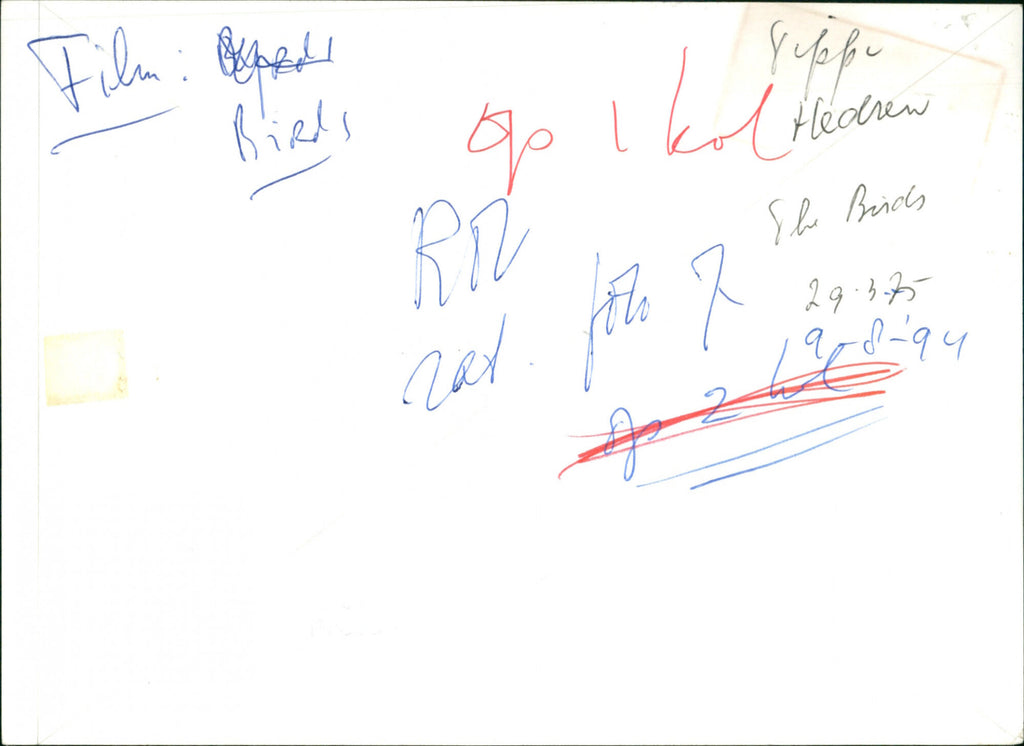 Film: Byrds
Birds
op 1 kol
Tippi
Hedren
The Birds
29-3-75
9-8-'94
RTV
zat. foto 7
op 2 kol